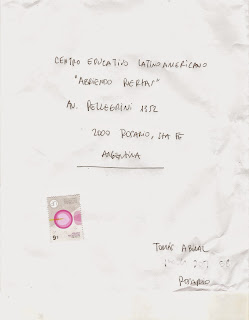 CENTRO EDUCATIVO LATINOAMERICANO
"ABRIENDO PUERTAS"
AV. PELLEGRINI 1352
2000 ROSARIO, STA FE
ARGENTINA
TOMÁS
ROSARIO